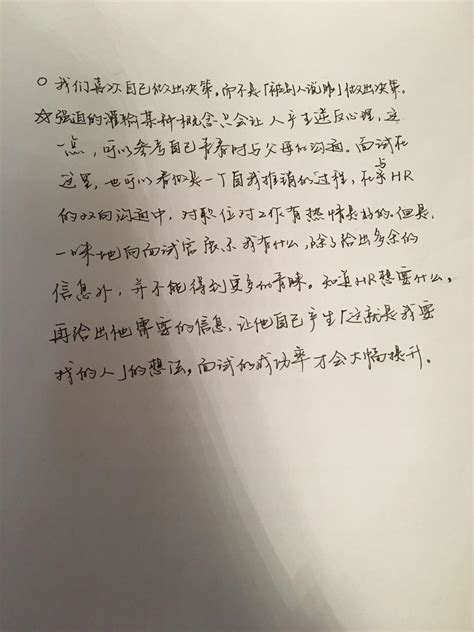 ○ 我们喜欢自己做出决策，而不是「被别人说服」做出决策。
☆ 强迫的灌输某种概念只会让人产生逆反心理，这
一点，可以参考自己青春时与父母的沟通。面试在
这里，也可以看做是一个自我推销的过程，在与HR
的双向沟通中，对职位对工作有热情是好的。但是，
一味地向面试官展示我有什么，除了给出多余的
信息外，并不能得到更多的青睐。知道HR想要什么，
再给出他需要的信息，让他自己产生「这就是我要
找的人」的想法，面试的成功率才会大幅提升。